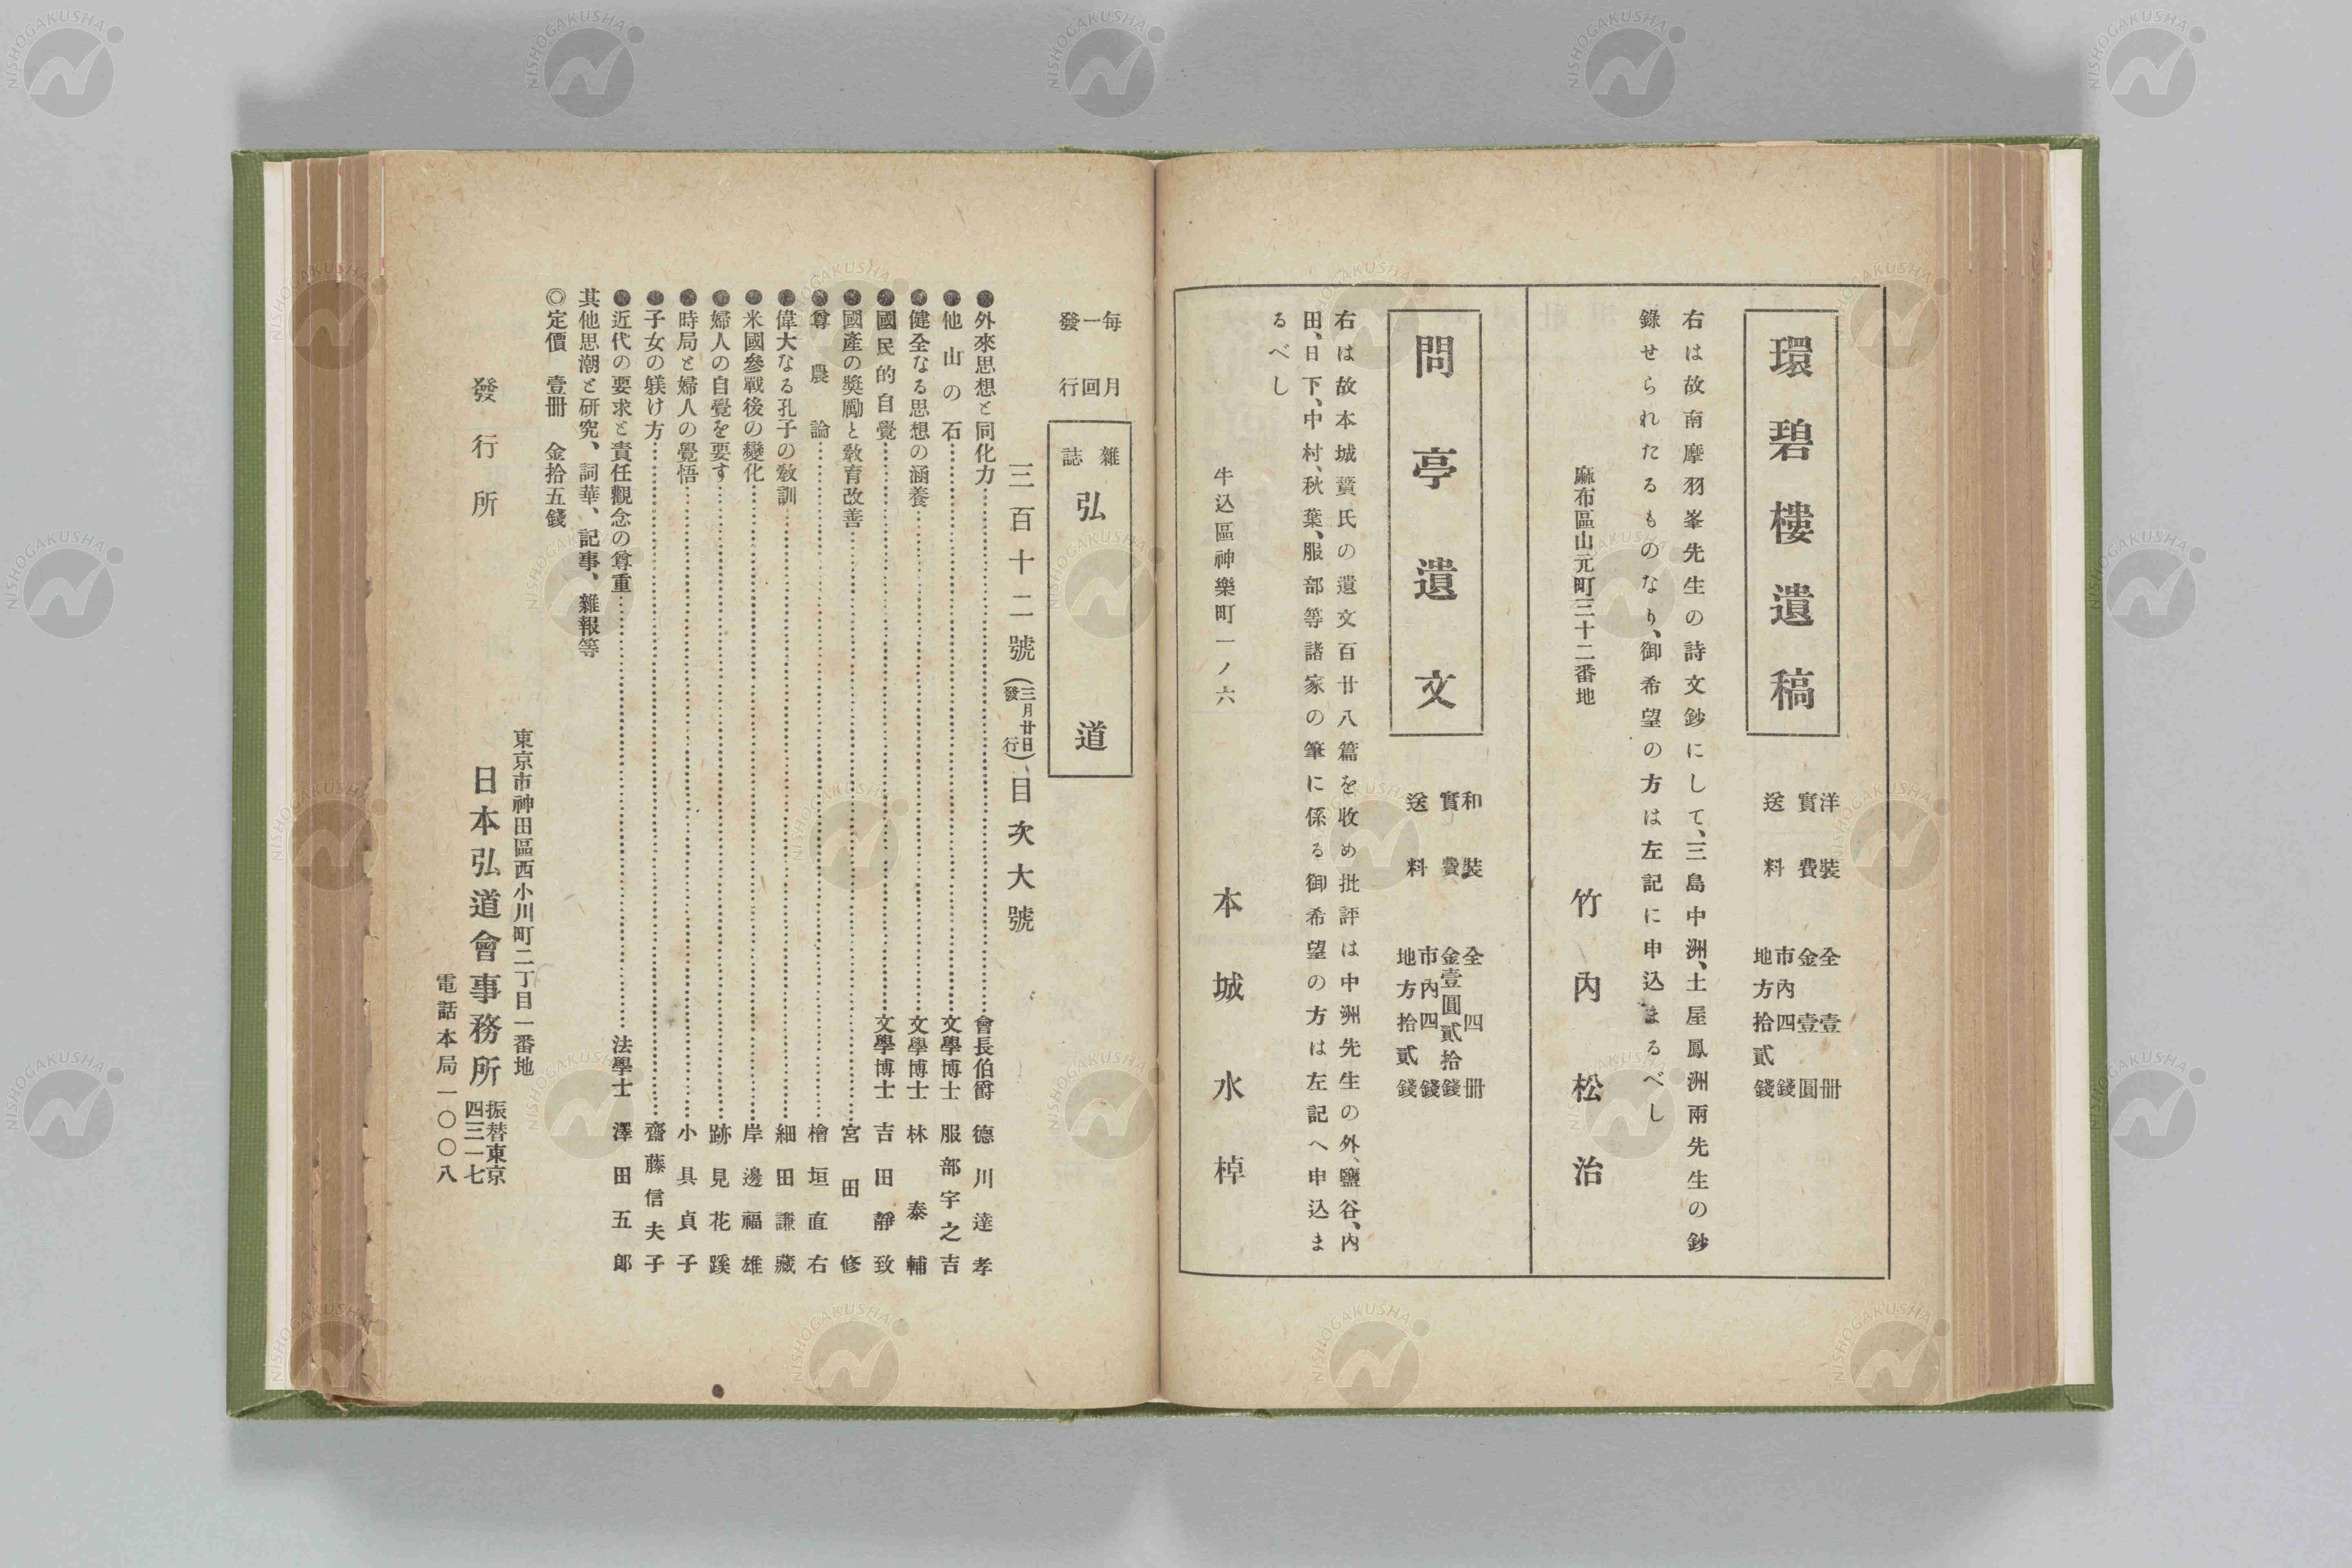 環碧樓遺稿
洋裝 全壹冊
實費 金壹圓
送料 市內四錢
地方拾貳錢
右は故南摩羽峯先生の詩文鈔にして、三島中洲、土屋鳳洲兩先生の鈔
錄せられたるものなり、御希望の方は左記に申込まるべし
麻布區山元町三十二番地
竹內松治
問亭遺文
和裝 全四冊
實費 金壹圓貳拾錢
送料 市內四錢
地方拾貳錢
右は故本城蕡氏の遺文百廿八篇を收め批評は中洲先生の外、鹽谷、內
田、日下、中村、秋葉、服部等諸家の筆に係る御希望の方は左記へ申込ま
るべし
牛込區神樂町一ノ六
本城水棹
每月
一回
發行
雜誌 弘道
三百十二號(三月廿日發行)、目次大號
●外來思想と同化力 會長伯爵 德川達孝
●他山の石 文學博士 服部宇之吉
●健全なる思想の涵養 文學博士 林泰輔
●國民的自覺 文學博士 吉田靜致
●國產の奬勵と敎育改善 宮田修
●尊農論 檜垣直右
●偉大なる孔子の敎訓 細田謙藏
●米國參戰後の變化 岸邊福雄
●婦人の自覺を要す 跡見花蹊
●時局と婦人の覺悟 小具貞子
●子女の躾け方 齋藤信夫子
●近代の要求と責任觀念の尊重 法學士 澤田五郎
其他思潮と研究、詞華、記事、雜報等
◎定價 壹冊 金拾五錢
東京市神田區西小川町二丁目一番地
發行所 日本弘道會事務所 振替東京四三一七
電話本局一〇〇八
NISHOGAKUSHA